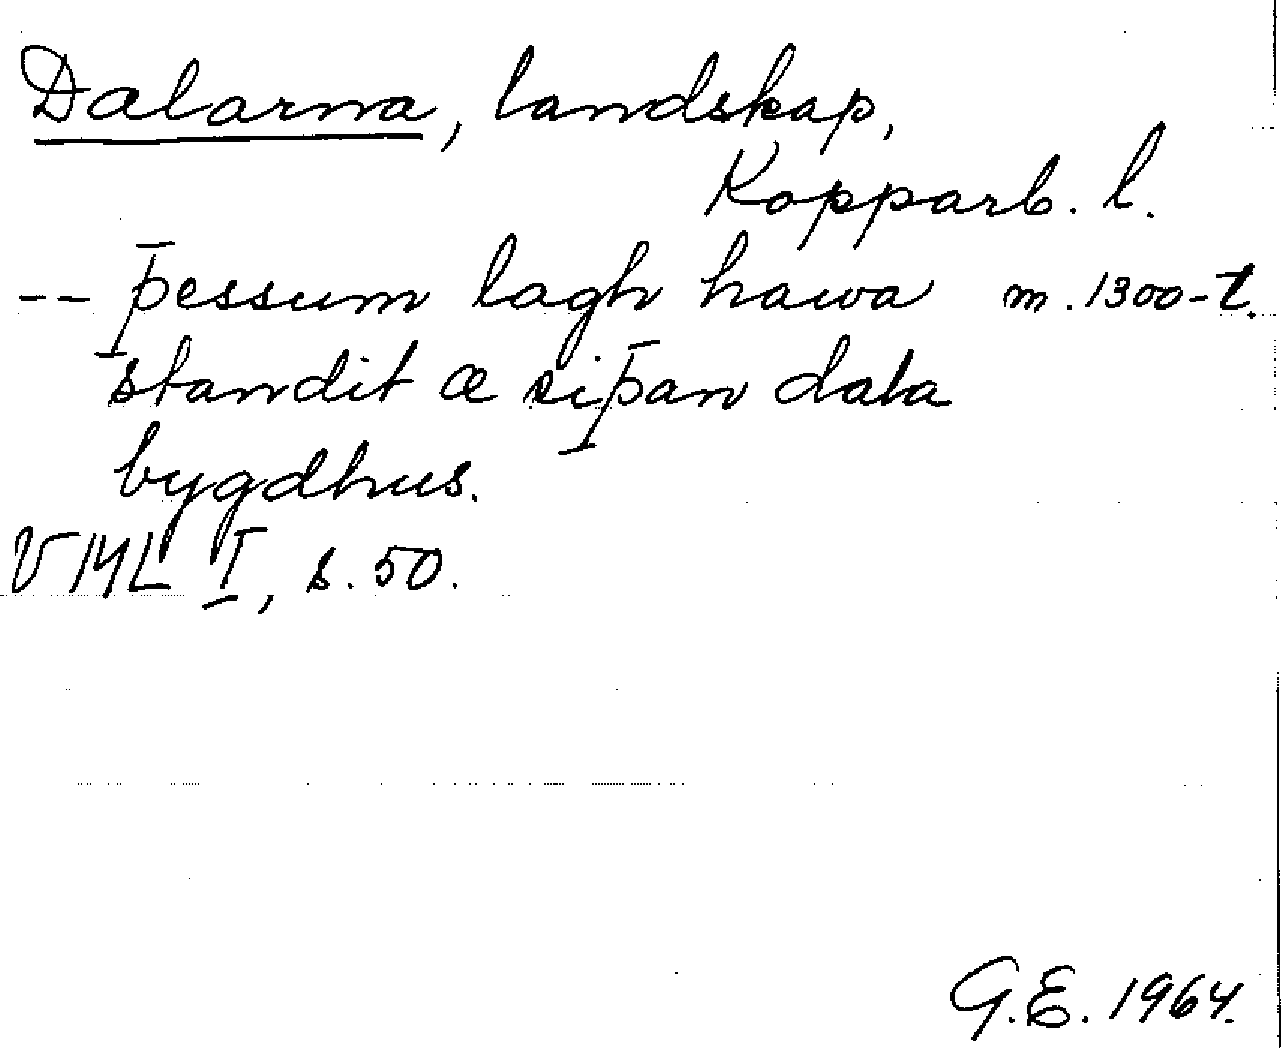 Dalarna, landskap,
Kopparb. l.
-- þessum lagh hawa m. 1300-t.
standit æ siþan dala
bygdhus.
VML I, s. 50.
G.E. 1964.